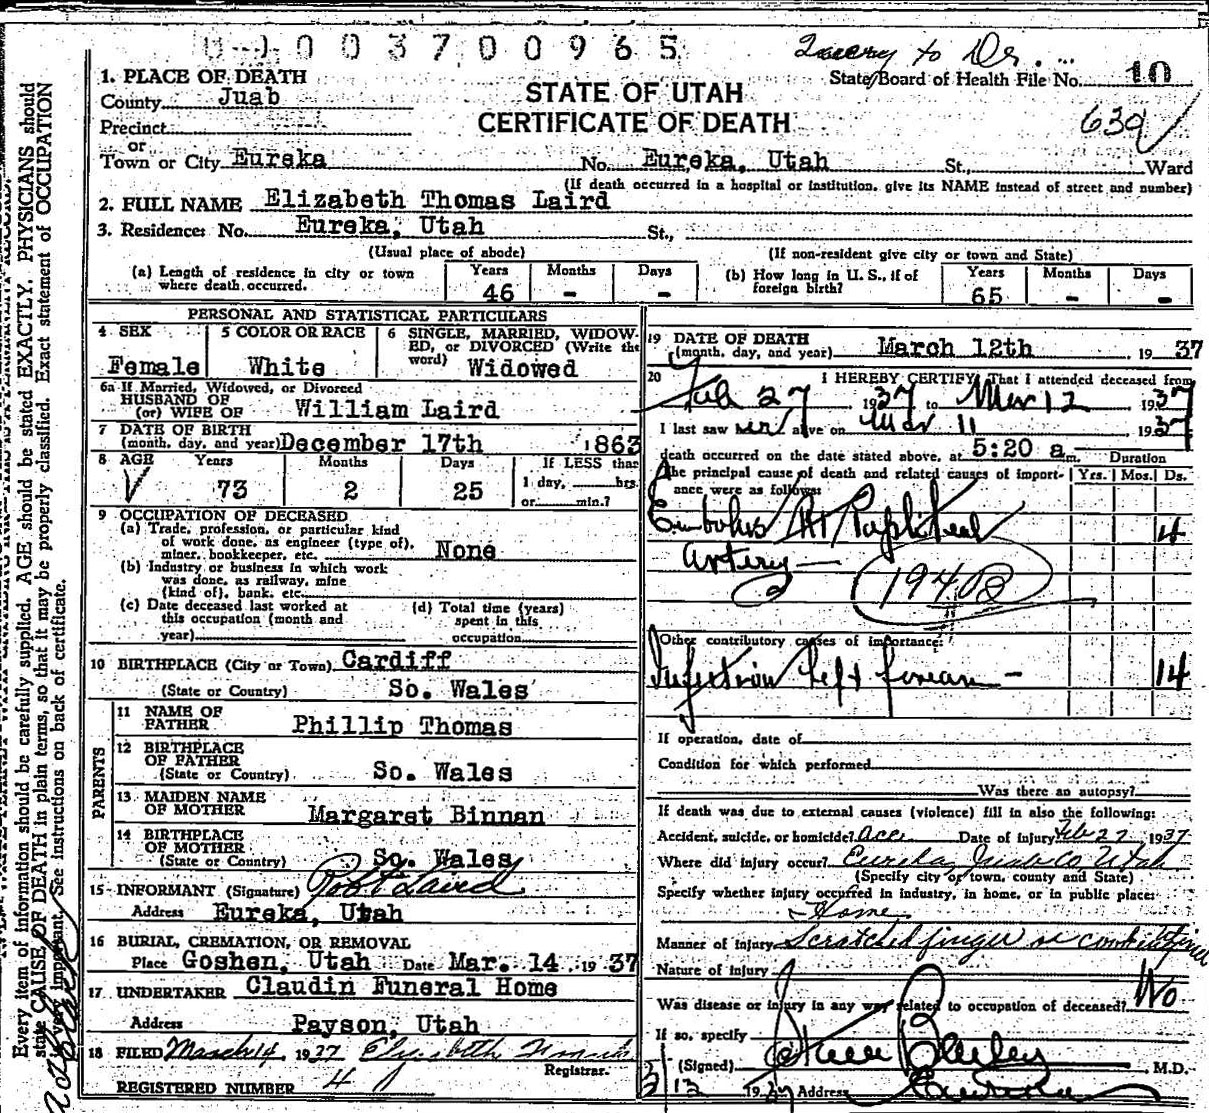 00003700965
Query to Dr. ...
1. PLACE OF DEATH
County Juab
Precinct
or
Town or City Eureka No. Eureka, Utah St., Ward
STATE OF UTAH
CERTIFICATE OF DEATH
State Board of Health File No. 10
639
(If death occurred in a hospital or institution, give its NAME instead of street and number)
2. FULL NAME Elizabeth Thomas Laird
3. Residence: No. Eureka, Utah St.,
(Usual place of abode) (If non-resident give city or town and State)
(a) Length of residence in city or town where death occurred. Years 46 Months - Days -
(b) How long in U. S., if of foreign birth? Years 65 Months - Days -
PERSONAL AND STATISTICAL PARTICULARS
4 SEX Female
5 COLOR OR RACE White
6 SINGLE, MARRIED, WIDOWED, or DIVORCED (Write the word) Widowed
6a If Married, Widowed, or Divorced
HUSBAND OF
(or) WIFE OF William Laird
7 DATE OF BIRTH
(month, day, and year) December 17th 1863
8 AGE Years 73 Months 2 Days 25 If LESS than 1 day, hrs. or min.?
9 OCCUPATION OF DECEASED
(a) Trade, profession, or particular kind
of work done, as engineer (type of),
miner, bookkeeper, etc. None
(b) Industry or business in which work
was done, as railway, mine
(kind of), bank, etc.
(c) Date deceased last worked at
this occupation (month and
year)
(d) Total time (years)
spent in this
occupation
10 BIRTHPLACE (City or Town) Cardiff
(State or Country) So. Wales
PARENTS
11 NAME OF
FATHER Phillip Thomas
12 BIRTHPLACE
OF FATHER
(State or Country) So. Wales
13 MAIDEN NAME
OF MOTHER Margaret Binnan
14 BIRTHPLACE
OF MOTHER
(State or Country) So. Wales
15 INFORMANT (Signature) Robt Laird
Address Eureka, Utah
16 BURIAL, CREMATION, OR REMOVAL
Place Goshen, Utah Date Mar. 14 1937
17 UNDERTAKER Claudin Funeral Home
Address Payson, Utah
18 FILED March 14, 1937 Elizabeth
Registrar.
REGISTERED NUMBER 4
19 DATE OF DEATH
(month, day, and year) March 12th 1937
20 I HEREBY CERTIFY, That I attended deceased from
Feb 27 1937 to Mar 12 1937
I last saw her alive on Mar 11 1937
death occurred on the date stated above, at 5:20 a m. Duration
The principal cause of death and related causes of importance were as follows: Yrs. Mos. Ds.
Embolus Rt Popliteal 4
artery
194OB
Other contributory causes of importance:
Infection left forearm - 14
If operation, date of
Condition for which performed
Was there an autopsy?
If death was due to external causes (violence) fill in also the following:
Accident, suicide, or homicide? Acc. Date of injury Feb 27 1937
Where did injury occur? Eureka, Juab Co Utah
(Specify city or town, county and State)
Specify whether injury occurred in industry, in home, or in public place:
Home
Manner of injury Scratched finger on
Nature of injury
Was disease or injury in any way related to occupation of deceased? No
If so, specify
(Signed) Bailey M.D.
3/12 1937 Address Eureka
Every item of information should be carefully supplied. AGE should be stated EXACTLY. PHYSICIANS should
state CAUSE OF DEATH in plain terms, so that it may be properly classified. Exact statement of OCCUPATION
is very important. See instructions on back of certificate.